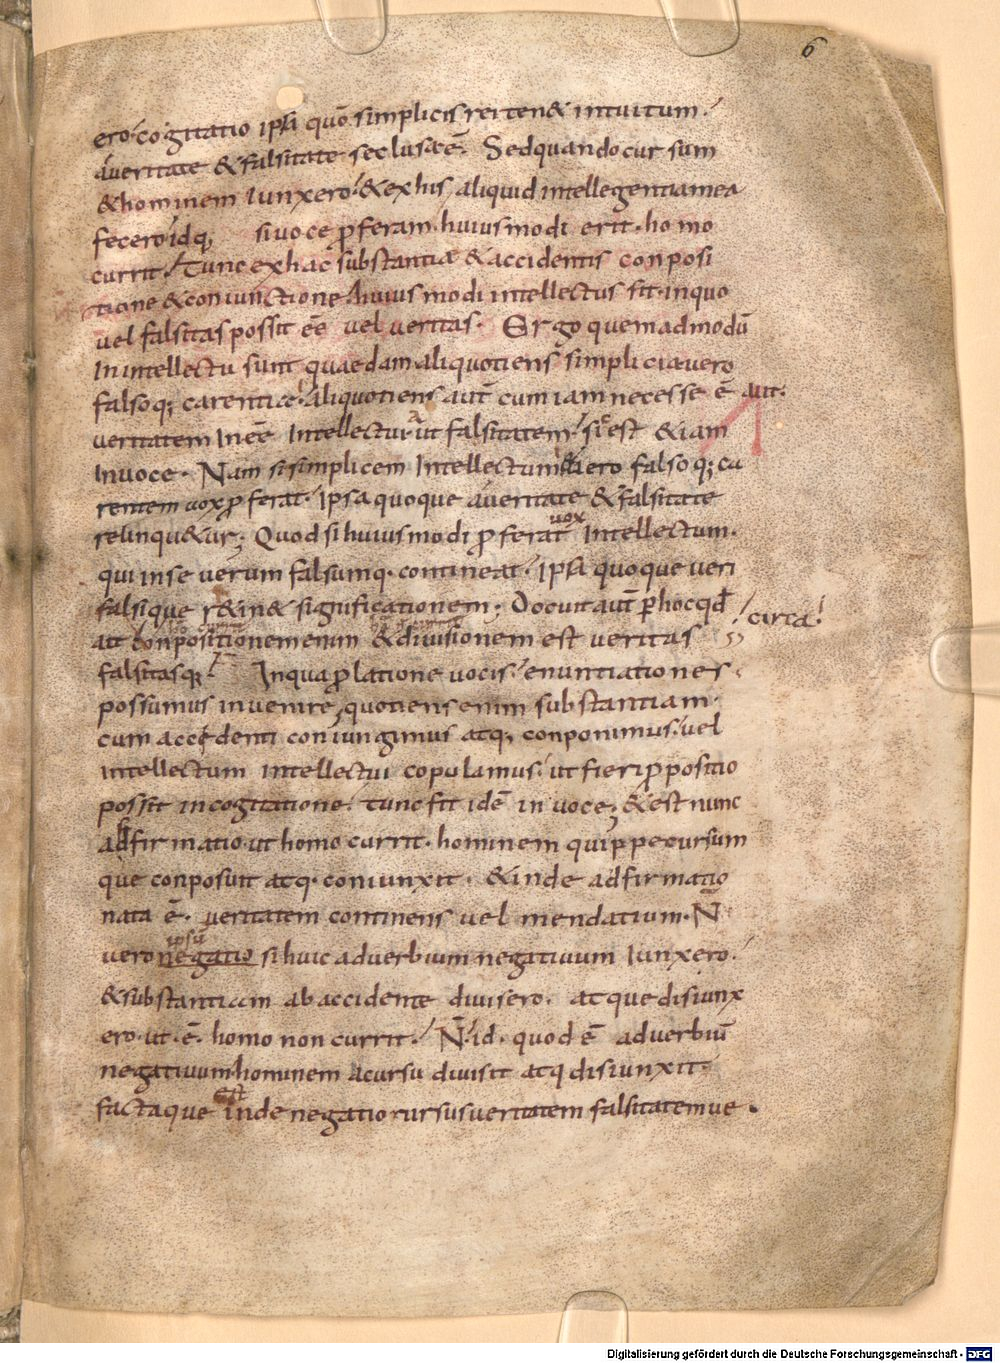 6
ero·cogitatio ipsa quō simplicis rei ten& intuitum·
a ueritate & falsitate seclusa ē· Sed quando cursum
& hominem iunxero· & ex his aliquid intellegentia mea
fecero idq; si uoce ꝓferam· huiusmodi erit· homo
currit· Tunc ex hac substantiæ & accidentis conposi
tione & coniunctione huiusmodi intellectus sit· in quo
uel falsitas possit eē uel ueritas· Ergo quemadmodū
in intellectu sunt quaedam aliquotiens simplicia uero
falsoq; carentia· aliquotiens aut̄ cum iam necesse ē aut·
ueritatem ineē intellectui aut falsitatem· sic est &iam
in uoce· Nam si simplicem intellectum uero falsoq; ca
rentem uox ꝓferat· ipsa quoque a ueritate & falsitate
relinqu&ur; Quod si huiusmodi ꝓferat uox intellectum·
qui in se uerum falsumq· contineat· ipsa quoque ueri
falsique r&in& significationem· Docuit aut̄ ꝑ hoc qđ
ait conpositionem enim & diuisionem est ueritas circa·
falsitasq; In qua ꝓlatione uocis· enuntiationes·
possumus inuenire, quotiens enim substantiam·
cum accidenti coniungimus atq; conponimus· uel
intellectum intellectui copulamus· ut fieri ꝓpositio
possit in cogitatione· tunc fit idē in uoce; & est nunc
adfirmatio ut homo currit· hominem quippe cursum
que conposuit atq· coniunxit· & inde adfirmatio
nata ē· ueritatem continens uel mendatium· N̄
uero negatio ipsū si huic aduerbium negatiuum iunxero·
& substantiam ab accidente diuisero· atque disiunx
ero· ut· ē· homo non currit· N̄· id· quod ē aduerbiū
negatiuum hominem a cursu diuisit atq disiunxit·
factaque est inde negatio rursus ueritatem falsitatemue·
Digitalisierung gefördert durch die Deutsche Forschungsgemeinschaft - DFG